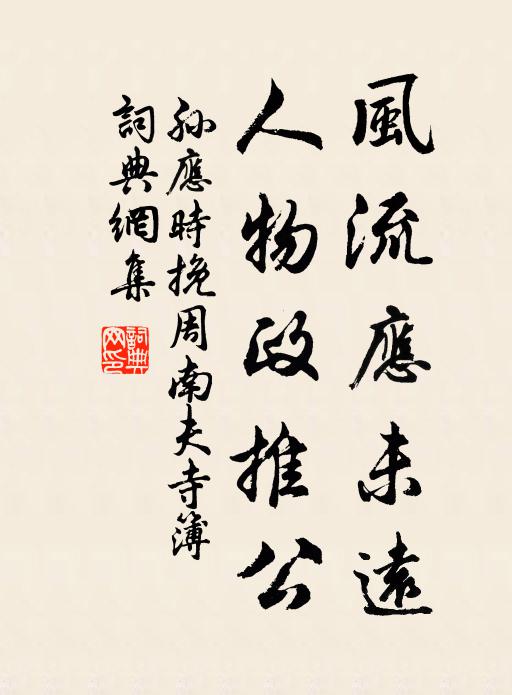 風流應未遠
人物政推公
孙應時挽周南夫寺簿
詞典網集
詞典網印